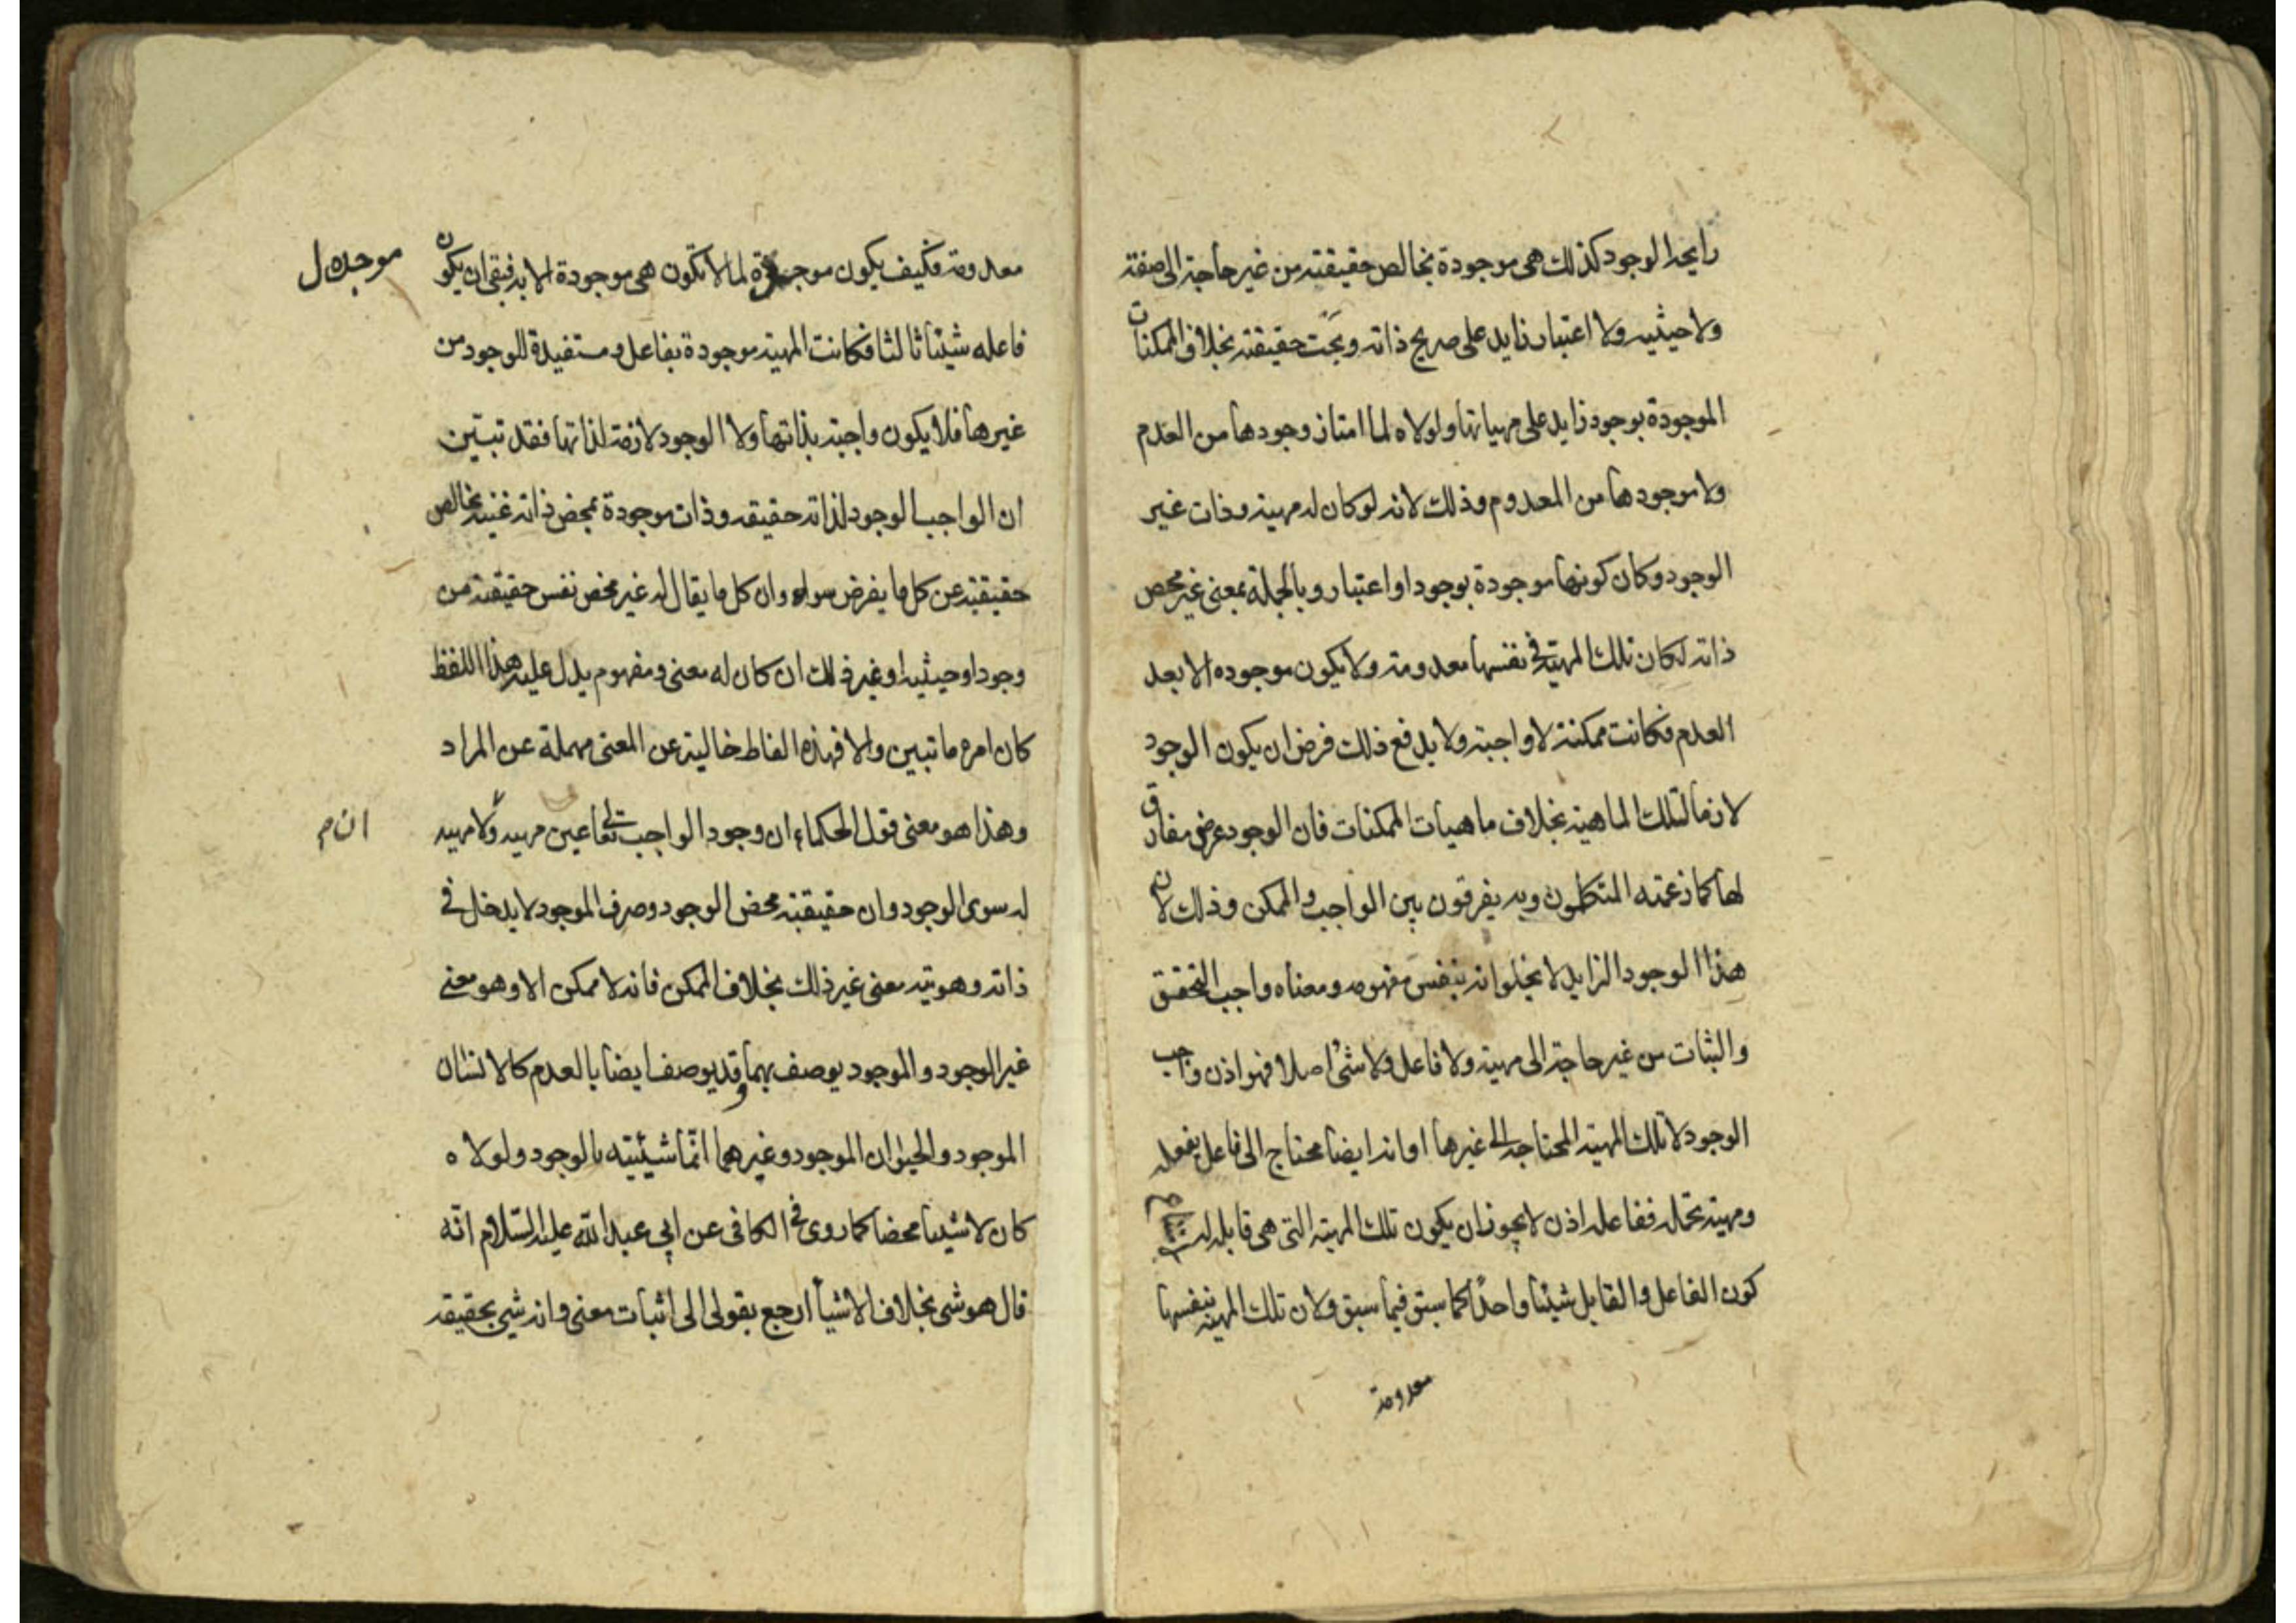 رايحه الوجود كذلك هى موجودة بخالص حقيقته من غير حاجة الى صفته
ولا حيثيه ولا اعتبار زايد على صريح ذاته وبحت حقيقته بخلاف الممكنات
الموجودة بوجود زايد على مهياتها ولولاه لما امتاز وجودها من العدم
ولا موجودها من المعدوم وذلك لانه لو كان له مهية وذات غير
الوجود وكان كونها موجودة بوجود او اعتبار وبالجملة بمعنى غير محض
ذاته لكان تلك المهية فى نفسها معدومة ولا يكون موجوده الا بعد
العدم فكانت ممكنة لا واجبة ولا يدفع ذلك فرض ان يكون الوجود
لازما لتلك الماهية بخلاف ماهيات الممكنات فان الوجود عرضى مفارق
لها كما زعمته المتكلمون وبه يفرقون بين الواجب والممكن وذلك لان
هذا الوجود الزايد لا يخلوا انه بنفس مفهومه ومعناه واجب التحقق
والثبات من غير حاجة الى مهية ولا فاعل ولا شئ اصلا فهو اذن واجب
الوجود لا تلك المهية المحتاجة الى غيرها او انه ايضا محتاج الى فاعل يفعله
ومهية تحمله ففاعله اذن لا يجوز ان يكون تلك المهية التى هى قابله له
كون الفاعل والقابل شيئا واحدا كما سبق فيما سبق ولان تلك المهية بنفسها
معدومة
معدومة فكيف يكون موجدة لما لا تكون هى موجودة الا به فبقى ان يكون
موجده ل
فاعله شيئا ثالثا فكانت المهية موجودة بفاعل ومستفيدة للوجود من
غيرها فلا يكون واجبة بذاتها ولا الوجود لازمة لذاتها فقد تبيّن
ان الواجب الوجود لذاته حقيقه وذات موجودة بمحض ذاته غنيه بخالص
حقيقته عن كل ما يفرض سواه وان كل ما يقال له غير محض نفس حقيقته من
وجود او حيثيه او غير ذلك ان كان له معنى ومفهوم يدل عليه هذا اللفظ
كان امره ما تبين والا فهذه الفاظ خالية عن المعنى مهملة عن المراد
وهذا هو معنى قول الحكماء ان وجود الواجب تعا عين مهيه ولا مهيه
ان م
له سوى الوجود وان حقيقته محض الوجود وصرف الموجود لا يدخل فى
ذاته وهويته معنى غير ذلك بخلاف الممكن فانه لا ممكن الا وهو معنى
غير الوجود والموجود يوصف بهما وقد يوصف ايضا بالعدم كالانسان
الموجود والحيوان الموجود وغيرهما انّما شيئيته بالوجود ولولاه
كان لا شيئا محضا كما روى فى الكافى عن ابي عبد الله عليه السّلام انّه
قال هو شى بخلاف الاشيأ ارجع بقولى الى اثبات معنى وانه شيى بحقيقه